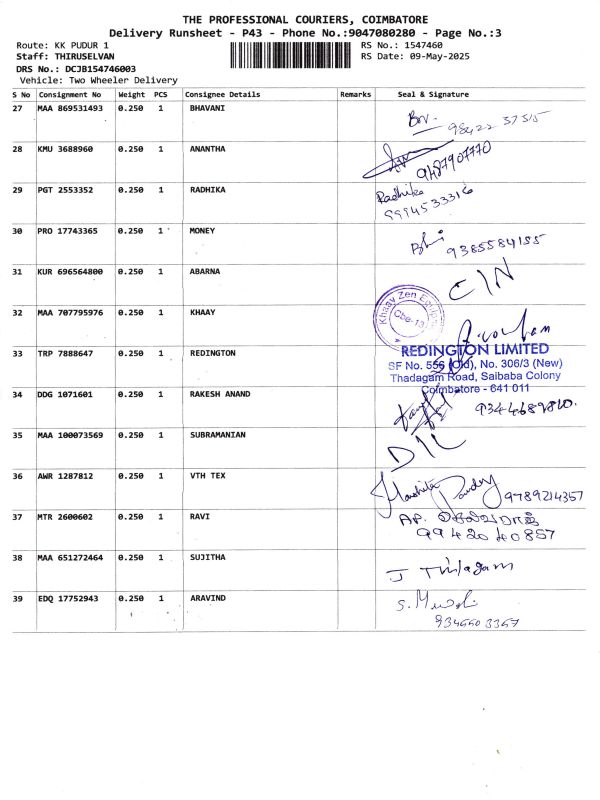 THE PROFESSIONAL COURIERS, COIMBATORE
Delivery Runsheet - P43 - Phone No.:9047080280 - Page No.:3
Route: KK PUDUR 1 RS No.: 1547460
Staff: THIRUSELVAN RS Date: 09-May-2025
DRS No.: DCJB154746003
Vehicle: Two Wheeler Delivery
S No Consignment No Weight PCS Consignee Details Remarks Seal & Signature
27 MAA 869531493 0.250 1 BHAVANI
28 KMU 3688960 0.250 1 ANANTHA 9487907770
29 PGT 2553352 0.250 1 RADHIKA Radhika
9994533316
30 PRO 17743365 0.250 1 MONEY 9385584155
31 KUR 696564800 0.250 1 ABARNA C/N
32 MAA 707795976 0.250 1 KHAAY Khaay Zen Cbe-13
33 TRP 7888647 0.250 1 REDINGTON REDINGTON LIMITED
SF No. 556 (Old), No. 306/3 (New)
Thadagam Road, Saibaba Colony
Coimbatore - 641 011
34 DDG 1071601 0.250 1 RAKESH ANAND
35 MAA 100073569 0.250 1 SUBRAMANIAN D/L
36 AWR 1287812 0.250 1 VTH TEX 9789214357
37 MTR 2600602 0.250 1 RAVI AP. செல்வராஜ்
99420 40857
38 MAA 651272464 0.250 1 SUJITHA J Thilagam
39 EDQ 17752943 0.250 1 ARAVIND